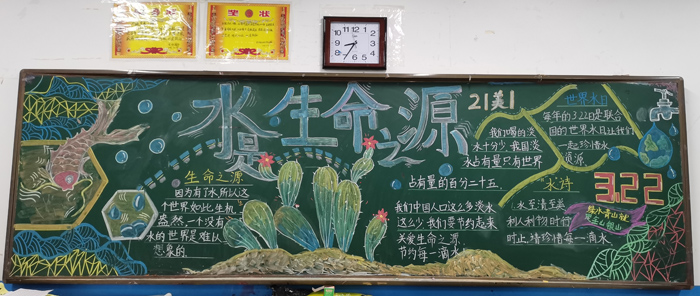 奖状
奖状
水是生命之源
21美1
生命之源
因为有了水所以这
个世界如此生机
盎然,一个没有
水的世界是难以
想象的
我们喝的淡
水十分少,我国淡
水占有量只有世界
占有量的百分二十五
我们中国人口这么多淡水
这么少我们要节约起来
关爱生命之源
节约每一滴水
世界水日
每年的3.22日是联合
国的世界水日让我们
一起珍惜水
资源
水诗
水至清至善
利人利物时行
时止,请珍惜每一滴水
3.22
绿水青山就
是金山银山